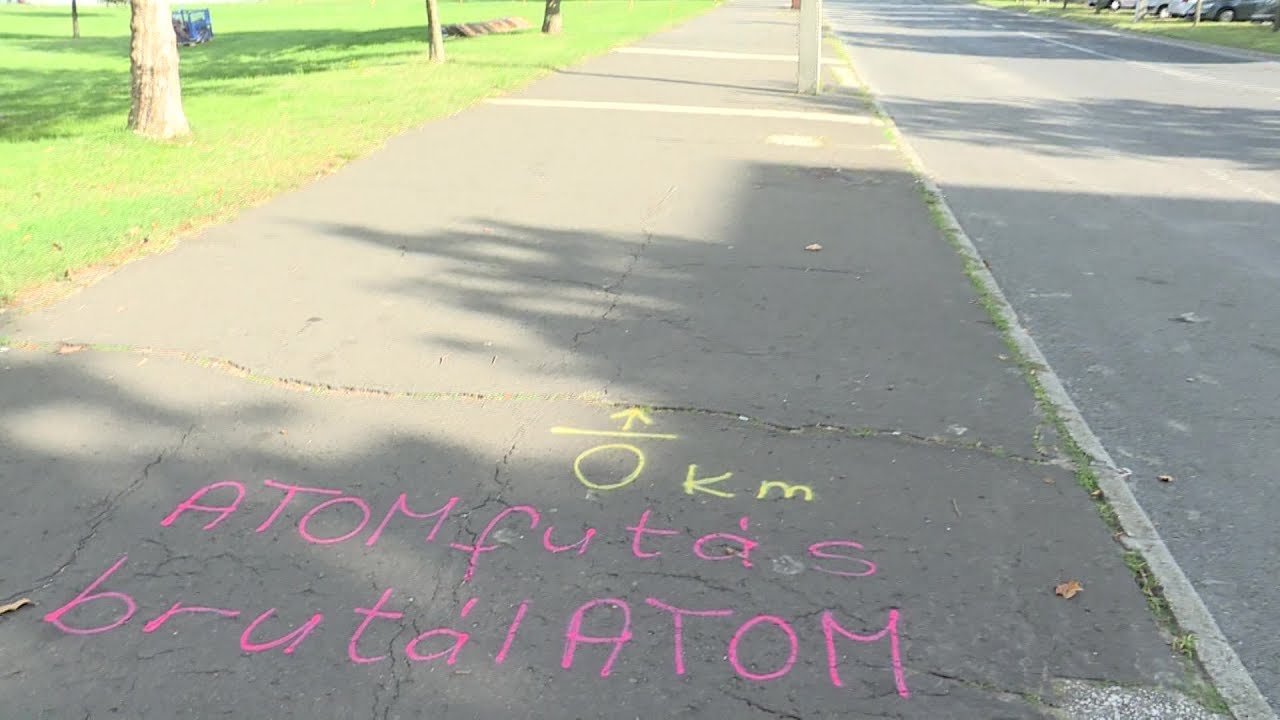 0 km
ATOMfutás
brutál ATOM